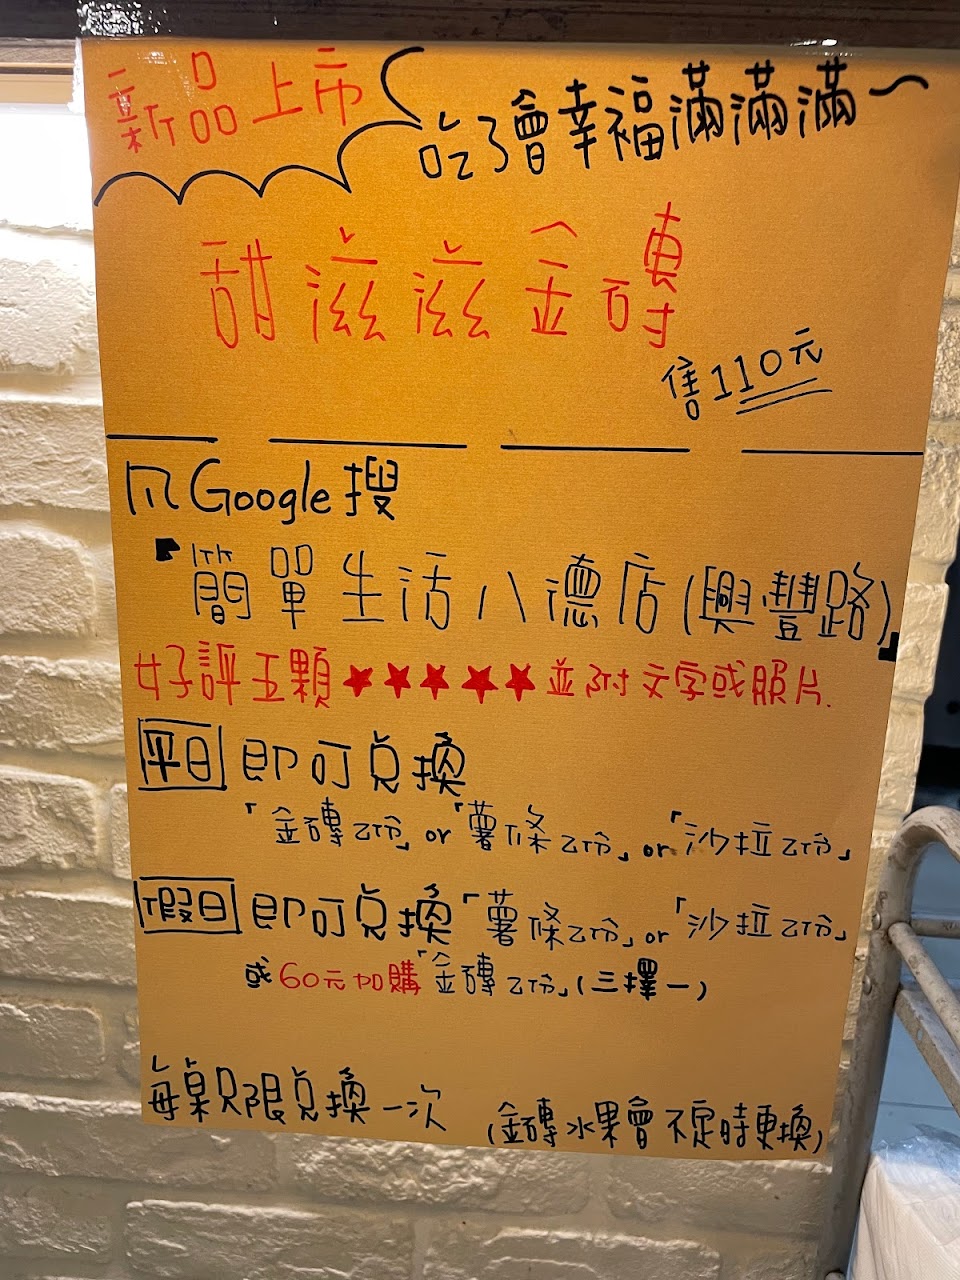 新品上市
吃了會幸福滿滿滿~
甜滋滋金磚
售110元
凡Google搜
「簡單生活八德店(興豐路)」
好評五顆★★★★★並附文字或照片.
平日即可兌換
「金磚乙份」or「薯條乙份」or「沙拉乙份」
假日即可兌換「薯條乙份」or「沙拉乙份」
或60元加購「金磚乙份」(三擇一)
每桌只限兌換一次 (金磚水果會不定時更換)